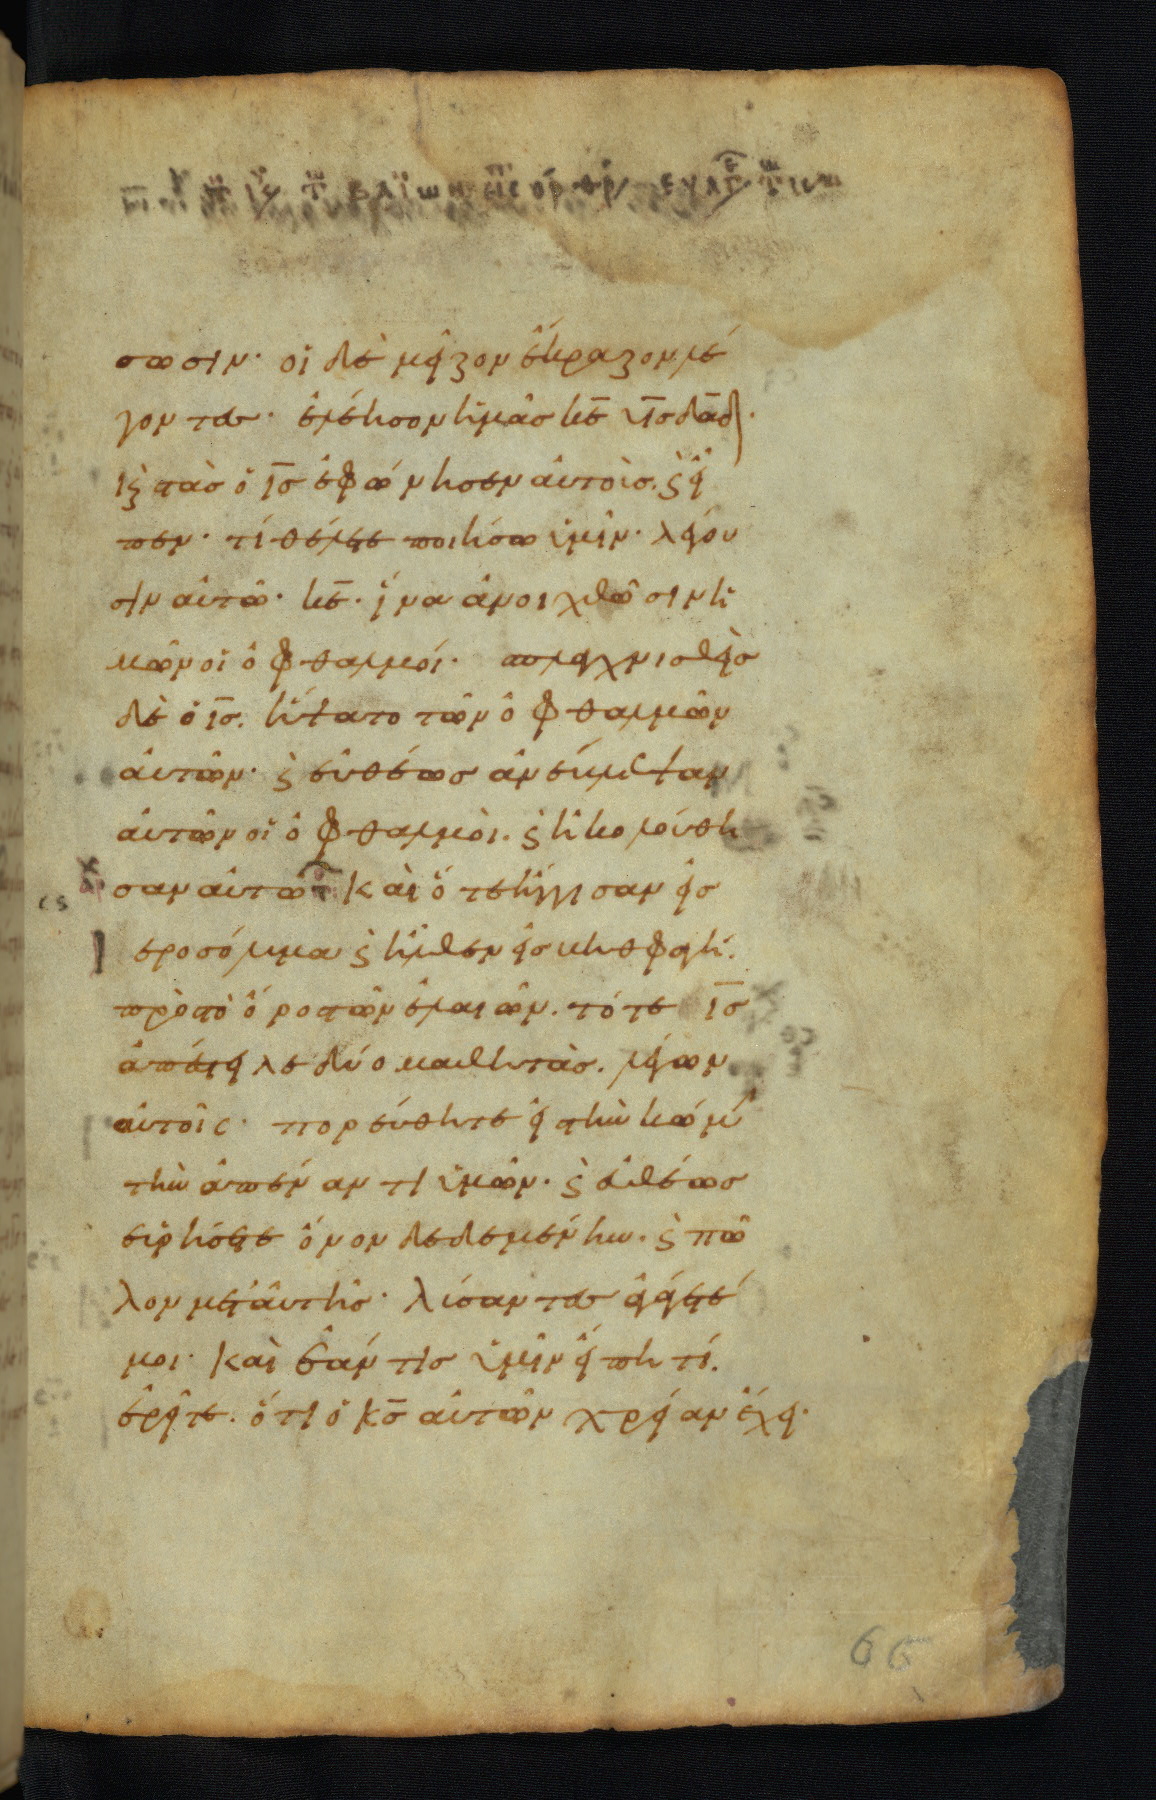 σωσιν· οἱ δὲ μεῖζον ἔκραζον λέ
γοντες· ἐλέησον ἡμᾶς κ̅ε̅ υ̅ι̅ς δα̅δ·
κς στὰς ὁ ι̅ς̅ ἐφώνησεν αὐτοὺς. ς εἶ
πεν· τί θέλετε ποιήσω ὑμῖν· λέγου
σιν αὐτῶ· κ̅ε̅· ἵνα ἀνοιχθῶσιν ἡ
μῶν οἱ ὀφθαλμοί· σπλαγχνισθεὶς
δὲ ὁ ι̅ς̅. ἥψατο τῶν ὀφθαλμῶν
αὐτῶν· ς εὐθέως ἀνέβλεψαν
αὐτῶν οἱ ὀφθαλμοὶ. ς ἠκολούθη
σαν αὐτῶ καὶ ὅτε ἤγγισαν εἰς
ιεροσόλυμα ς ἦλθεν εἰς βηθφαγή.
πρὸς τὸ ὄρος τῶν ἐλαιῶν. τότε ι̅ς̅
ἀπέστειλε δύο μαθητὰς. λέγων
αὐτοῖς· πορεύθητε εἰς τὴν κώμη
τὴν ἀπέναντι ὑμῶν· ς εὐθέως
εὑρήσετε ὄνον δεδεμένην. ς πῶ
λον μετ' αὐτῆς· λύσαντες ἀγάγετέ
μοι· καὶ ἐάν τις ὑμῖν εἴπη τί.
ἐρεῖτε. ὅτι ὁ κ̅ς̅ αὐτῶν χρείαν ἔχει·
66